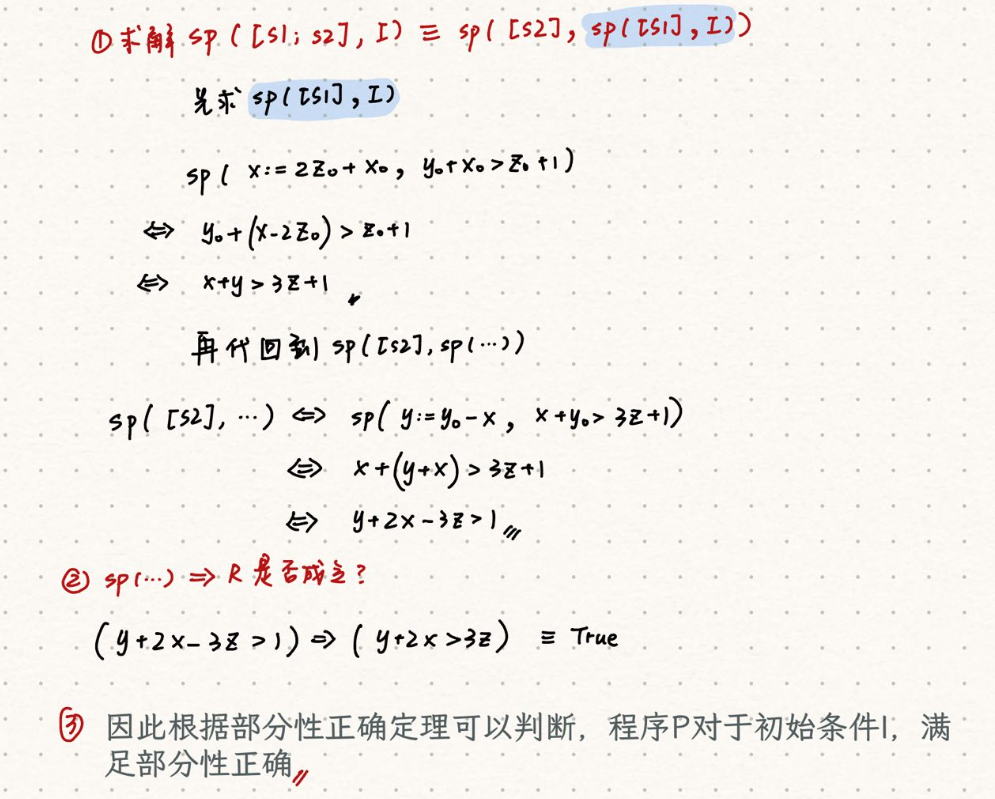 ① 求解 sp ( [S1; S2], I ) ≡ sp( [S2], sp([S1], I))
先求 sp([S1], I)
sp( x:=2z₀+x₀, y₀+x₀>z₀+1)
⇔ y₀+(x-2z₀)>z₀+1
⇔ x+y>3z+1
再代回到 sp([S2], sp(…))
sp( [S2], …) ⇔ sp( y:=y₀-x, x+y₀>3z+1)
⇔ x+(y+x)>3z+1
⇔ y+2x-3z>1
② sp(…) ⇒ R 是否成立?
(y+2x-3z>1) ⇒ (y+2x>3z) ≡ True
③ 因此根据部分性正确定理可以判断,程序P对于初始条件I,满
足部分性正确